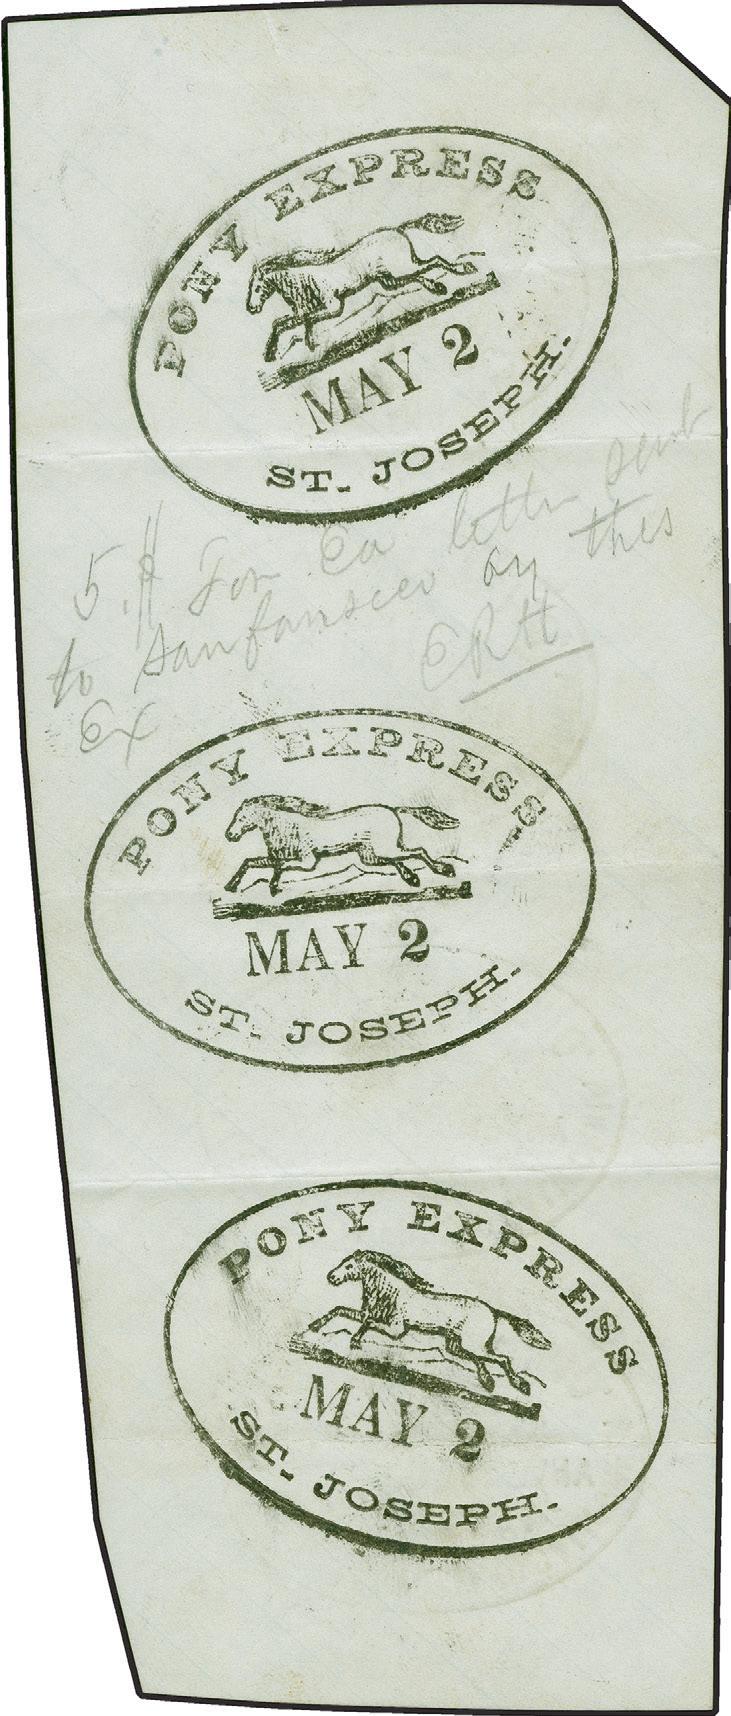 PONY EXPRESS
MAY 2
ST. JOSEPH.
5.$ For Ea letter sent
to Sanfansceo by this
Ex ERH
PONY EXPRESS
MAY 2
ST. JOSEPH.
PONY EXPRESS
MAY 2
ST. JOSEPH.